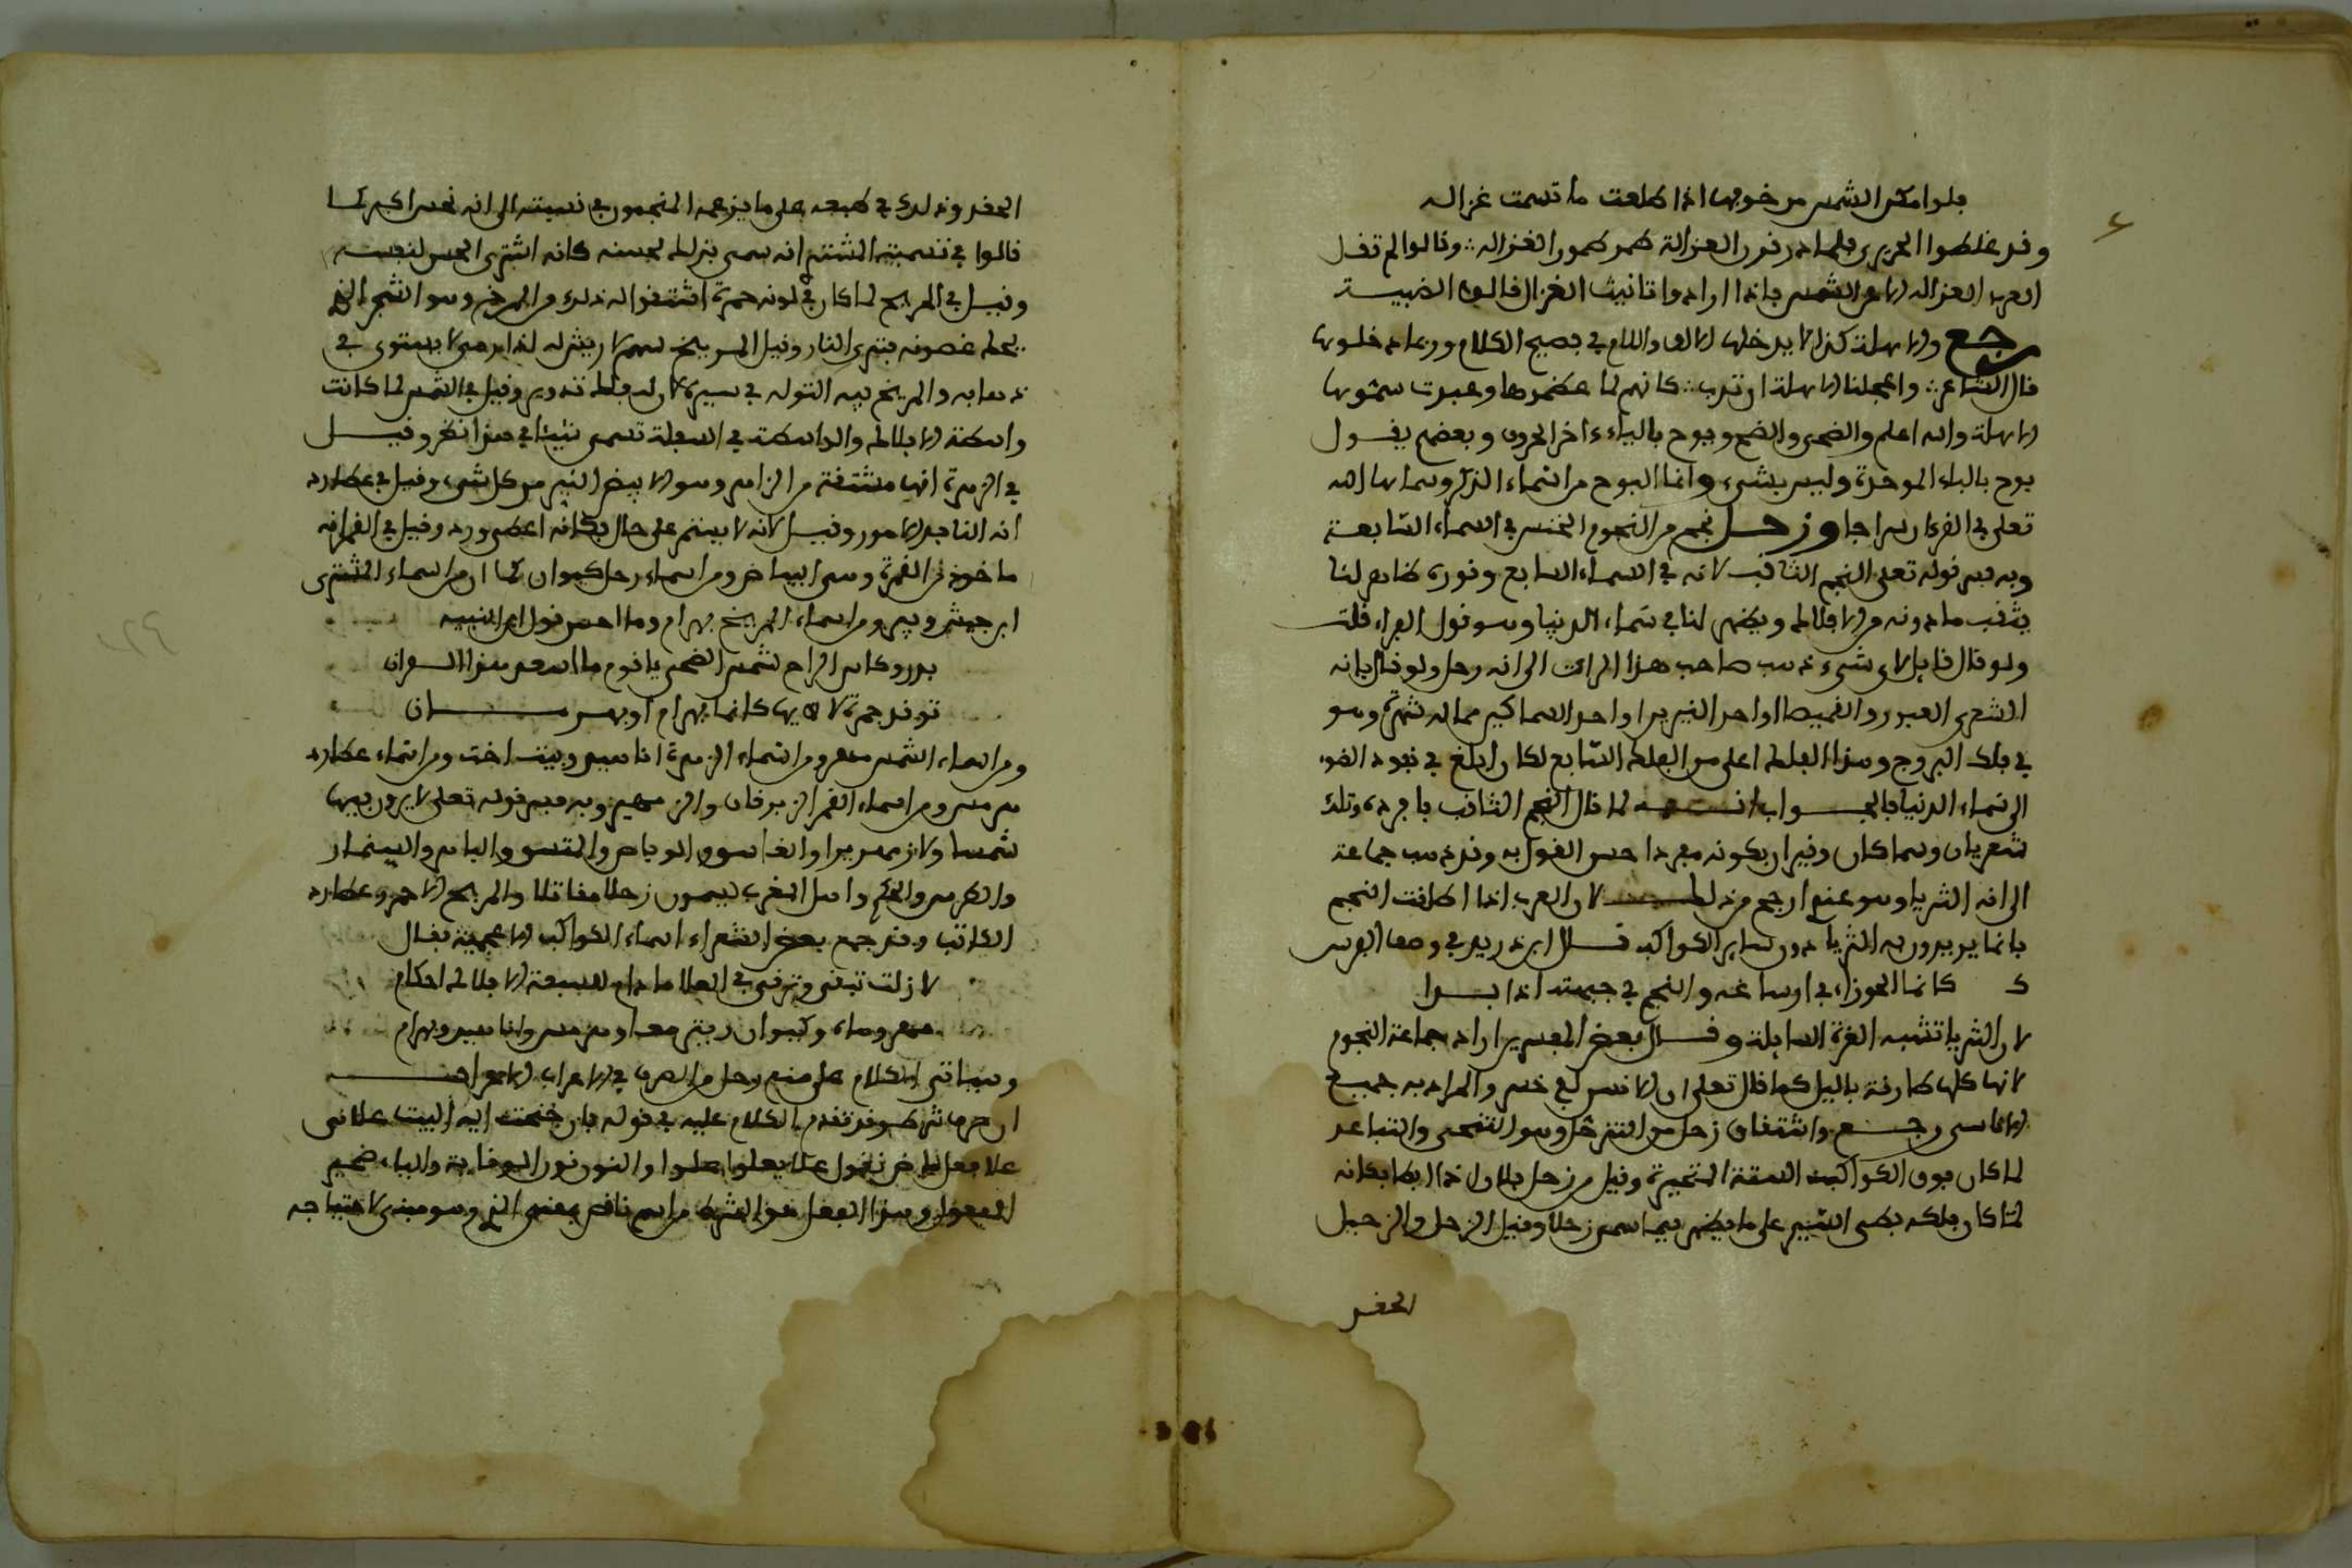 فلو لم تكن الشمس من خوفها اذا طلعت ما تسمت غزاله
وقد غلطوا الحريري فلما ذر قرن الغزالة طمر طمور الغزاله ∴ وقالوا لم تقل
العرب الغزالة الا في الشمس فاذا ارادوا تانيث الغزال قالوا الظبية
رجع والالاهة كذا لا يدخلها الالف واللام في فصيح الكلام وربما ادخلوها
قال الشاعر ∴ واعجلنا الالاهة ان تؤب ∴ كانهم لما عظموها وعبدت سموها
الالاهة والله اعلم والضحى والضح ويوح بالياء ءاخر الحروف وبعضهم يقول
بوح بالباء الموحدة وليس بشيء وانما البوح من اسماء الذكر وسماها الله
تعلى في القرءان سراجا وزحل نجم من النجوم الخنس في السماء السابعة
وبه فسر قوله تعلى النجم الثاقب لانه في السماء السابع ونوره ظاهر لنا
يثقب ما دونه من الافلاك ويظهر لنا في سماء الدنيا وهو قول الفراء قلت
ولو قال قايل لاي شيء ذهب صاحب هذا الراي الى انه زحل ولو قال بانه
الشعرى العبور والغميصا او احد النيرين او احد السماكين مما له شهرة وهو
في فلك البروج وهذا الفلك اعلى من الفلك السابع لكان ابلغ في نفوذ الضوء
الى سماء الدنيا فالجواب انه لما قال النجم الثاقب بافراده وتلك
شعريان وسماكان ونيران بكونه مفردا حسن القول به وقد ذهب جماعة
الى انه الثريا وهو عندي ارجح من ذلك لان العرب اذا اطلقت النجم
فانما يريدون به الثريا دون ساير الكواكب قال ابن دريد في وصف الفرس
كانما الجوزاء في ارساغه والنجم في جبهته اذا بدا
لان الثريا تشبه الغرة السايلة وقال بعض المفسرين اراد جماعة النجوم
لانها كلها طارقة بالليل كما قال تعلى ان الانسان لفي خسر والمراد به جميع
الاناسي رجع واشتقاق زحل من التزحل وهو التنحي والتباعد
لما كان فوق الكواكب الستة المتحيرة وقيل من زحل فلان اذا ابطا فكانه
لما كان فلكه بطي السير على ما يظهر فيما سمي زحلا وقيل الزحل والزحيل
الحقد
الحقد وذلك في طبعه على ما يزعمه المنجمون في نسبته الى انه نحس اكبر كما
قالوا في تسمية المشتري انه سمي بذلك لحسنه كانه اشترى الحسن لنفسه
وقيل في المريخ لما كان في لونه حمرة اشتقوا له ذلك من المرخ وهو الشجر الذي
يحك غصونه فتوري النار وقيل المريخ سهم لا ريش له اذا رمي لا يستوي في
ذهابه والمريخ فيه التواء في سيره لان له فلك تدوير وقيل في الشمس لما كانت
واسطة الافلاك والواسطة في السفلة تسمى شمسا في هذا نظر وقيل
في الزهرة انها مشتقة من الزاهر وهو الابيض النير من كل شيء وقيل في عطارد
انه النافذ في الامور وقيل لانه لا يستمر على حال فكانه اعطي ورد وقيل في القمر انه
ماخوذ من القمرة وهي البياض ومن اسماء زحل كيوان كما ان من اسماء المشتري
البرجيس وبير ومن اسماء المريخ بهرام وما احسن قول ابن النبيه
بدر وكاس الراح شمس الضحى يا قوم ما اسعد هذا القران
توقد جمرة لاهيها كانما بهرام او بهرمان
ومن اسماء الشمس مهر ومن اسماء الزهرة اناهيد وبيذخت ومن اسماء عطارد
هرمس ومن اسماء القمر الزبرقان والزمهرير وبه فسر قوله تعلى لا يرون فيها
شمسا ولا زمهريرا والغاسق والوباص والمتسق والباهر والسنمار
والطوس والجلم واهل المغرب يسمون زحلا مقاتلا والمريخ الاحمر وعطارد
الكاتب وقد جمع بعض الشعراء اسماء الكواكب الاعجمية فقال
لا زلت تبقى وترقى في العلا ما دام للسبعة الافلاك احكام
مهر وماه وكيوان وبير معا وهرمس واناهيد وبهرام
وسياتي الكلام على منع زحل من الصرف في الاعراب الاعراب
ان حرف شرط وقد تقدم الكلام عليه في قوله فان جنحت اليه البيت علاني
علا فعل ماض تقول علا يعلو علوا والنون نون الوقاية والياء ضمير
المفعول وهذا الفعل هو الشرط من اسم ناقص بمعنى الذي وهو مبني لاحتياجه